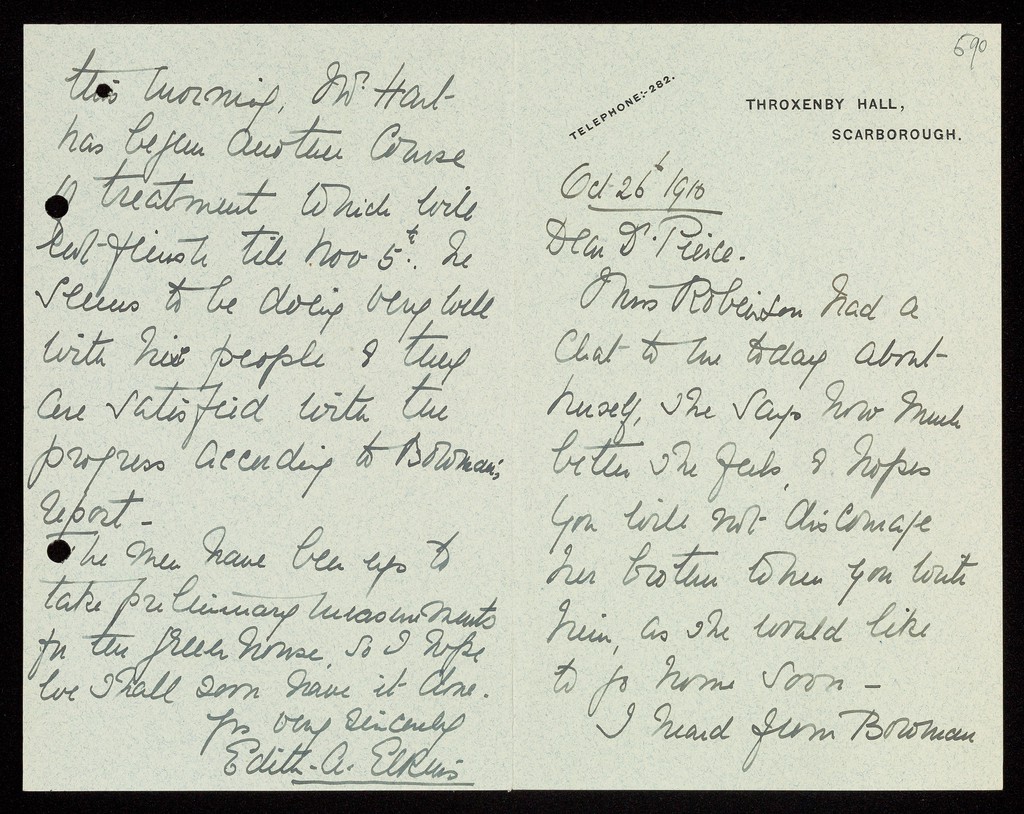 590
TELEPHONE:-282.
THROXENBY HALL,
SCARBOROUGH.
Oct. 26th 1910
Dear Dr. Pierce.
Miss Robinson had a
chat to me today about
herself, she says how much
better she feels, & hopes
you will not discourage
her brother when you write
him, as she would like
to go home soon -
I heard from Bowman
this morning, Mr. Hart
has begun another course
of treatment which will
not finish till Nov 5th. He
seems to be doing very well
with his people & they
are satisfied with the
progress according to Bowman's
report -
The men have been up to
take preliminary measurements
for the green house, so I hope
we shall soon have it done.
Yrs very sincerely
Edith. A. Elkins